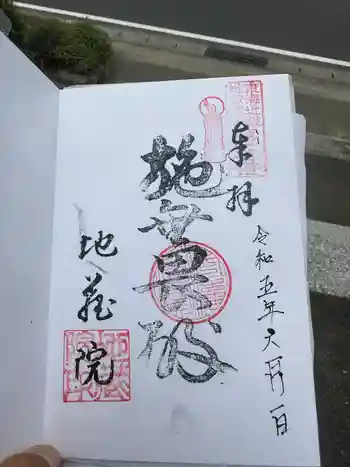 奉拝
令和五年六月一日
施無畏殿
地蔵院